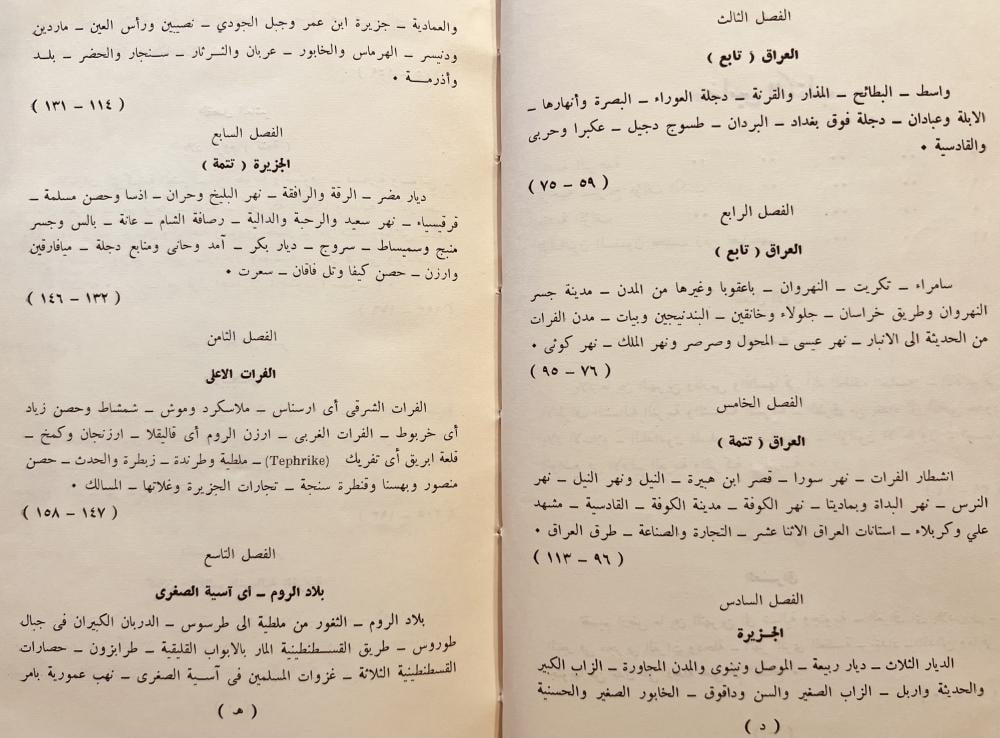 الفصل الثالث
العراق ( تابع )
واسط ــ البطائح ــ المذار والقرنة ــ دجلة العوراء ــ البصرة وأنهارها ــ
الابلة وعبادان ــ دجلة فوق بغداد ــ البردان ــ طسوج دجيل ــ عكبرا وحربى
والقادسية ٠
( ٥٩ – ٧٥ )
الفصل الرابع
العراق ( تابع )
سامراء ــ تكريت ــ النهروان ــ باعقوبا وغيرها من المدن ــ مدينة جسر
النهروان وطريق خراسان ــ جلولاء وخانقين ــ البندنيجين وبيات ــ مدن الفرات
من الحديثة الى الانبار ــ نهر عيسى ــ المحول وصرصر ونهر الملك ــ نهر كوثى ٠
( ٧٦ – ٩٥ )
الفصل الخامس
العراق ( تتمة )
انشطار الفرات ــ نهر سورا ــ قصر ابن هبيرة ــ النيل ونهر النيل ــ نهر
النرس ــ نهر البداة وبماديتا ــ نهر الكوفة ــ مدينة الكوفة ــ القادسية ــ مشهد
علي وكربلاء ــ استانات العراق الاثنا عشر ــ التجارة والصناعة ــ طرق العراق ٠
( ٩٦ – ١١٣ )
الفصل السادس
الجـزيرة
الديار الثلاث ــ ديار ربيعة ــ الموصل ونينوى والمدن المجاورة ــ الزاب الكبير
والحديثة واربل ــ الزاب الصغير والسن وداقوق ــ الخابور الصغير والحسنية
( د )
والعمادية ــ جزيرة ابن عمر وجبل الجودي ــ نصيبين ورأس العين ــ ماردين
ودنيسر ــ الهرماس والخابور ــ عربان والثرثار ــ سنجار والحضر ــ بلـد
وأذرمـة ٠
( ١١٤ – ١٣١ )
الفصل السابع
الجزيرة ( تتمة )
ديار مضر ــ الرقة والرافقة ــ نهر البليخ وحران ــ اذسا وحصن مسلمة ــ
قرقيسياء ــ نهر سعيد والرحبة والدالية ــ رصافة الشام ــ عانة ــ بالس وجسر
منبج وسميساط ــ سروج ــ ديار بكر ــ آمد وحانى ومنابع دجلة ــ ميافارقين
وارزن ــ حصن كيفا وتل فافان ــ سعرت ٠
( ١٣٢ – ١٤٦ )
الفصل الثامن
الفرات الاعلى
الفرات الشرقى أى ارسناس ــ ملاسكرد وموش ــ شمشاط وحصن زياد
أى خربوط ــ الفرات الغربى ــ ارزن الروم أى قاليقلا ــ ارزنجان وكمخ ــ
قلعة ابريق أى تفريك (Tephrike) ــ ملطية وطرندة ــ زبطرة والحدث ــ حصن
منصور وبهسنا وقنطرة سنجة ــ تجارات الجزيرة وغلاتها ــ المسالك ٠
( ١٤٧ – ١٥٨ )
الفصل التاسع
بلاد الروم ــ أى آسية الصغرى
بلاد الروم ــ الثغور من ملطية الى طرسوس ــ الدربان الكبيران فى جبال
طوروس ــ طريق القسـطنطينية المار بالابواب القليقية ــ طرابزون ــ حصارات
القسطنطينية الثلاثة ــ غزوات المسلمين فى آسية الصغرى ــ نهب عمورية بامر
( هـ )